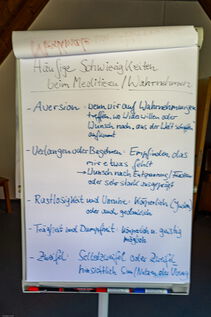 Häufige Schwierigkeiten
beim Meditieren/Wahrnehmen
- Aversion - wenn wir auf Wahrnehmungen
treffen, wo Widerwillen oder
Wunsch nach, aus der Welt schaffen
aufkommt
- Verlangen oder Begehren: Empfinden, das
mir etwas fehlt
→ Wunsch nach Entspannung/Frieden
oder sehr stark ausgeprägt
- Rastlosigkeit und Unruhe: Körperlich
oder auch gedanklich
- Trägheit und Dumpfheit: Körperlich u. geistig
möglich
- Zweifel: Selbstzweifel oder Zweifel
hinsichtlich Sinn/Nutzen der Übung